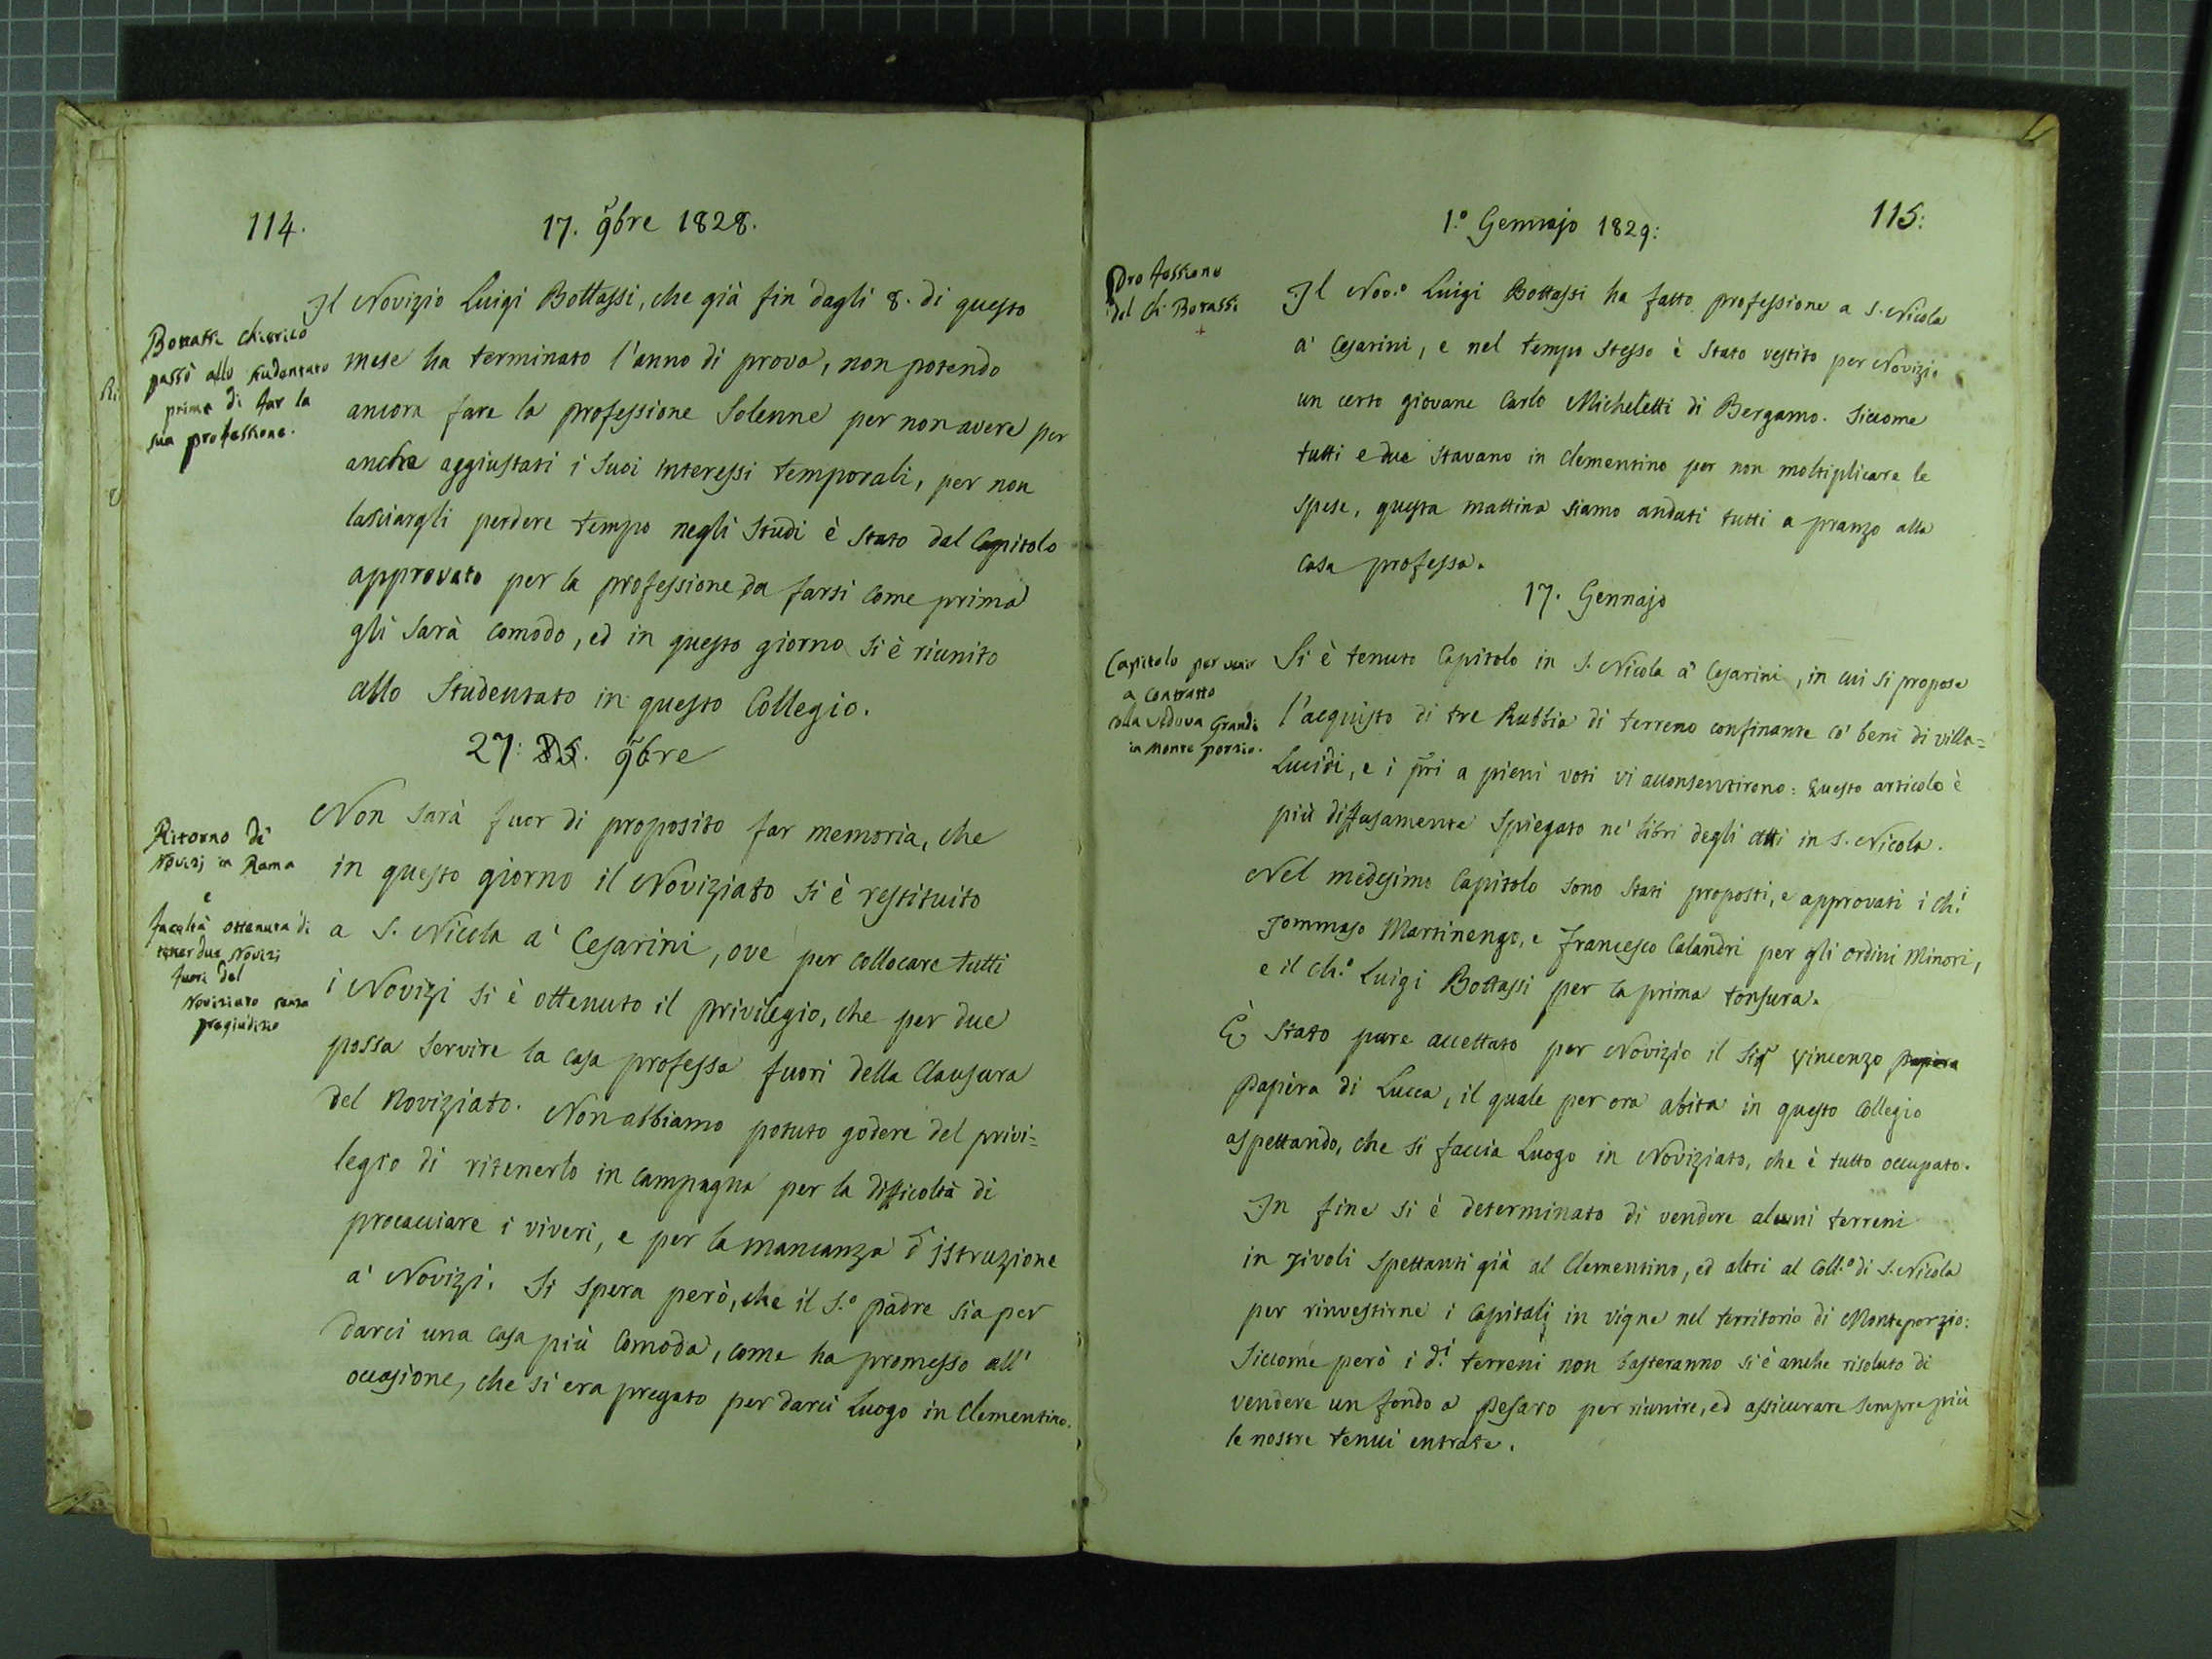 114.
17. 9bre 1828.
Bottassi Chierico
passò allo studentato
prima di far la
sua professione.
Il Novizio Luigi Bottassi, che già fin dagli 8. di questo
mese ha terminato l'anno di prova, non potendo
ancora fare la professione Solenne per non avere per
anche aggiustati i suoi interessi temporali, per non
lasciargli perdere tempo negli Studi è stato dal Capitolo
approvato per la professione da farsi come prima
gli sarà comodo, ed in questo giorno si è riunito
allo Studentato in questo Collegio.
27: 25. 9bre
Ritorno de'
Novizj in Roma
e
facoltà ottenuta di
tener due Novizj
fuori del
Noviziato senza
pregiudizio
Non sarà fuor di proposito far memoria, che
in questo giorno il Noviziato si è restituito
a S. Nicola a' Cesarini, ove per collocare tutti
i Novizi si è ottenuto il privilegio, che per due
possa servire la casa professa fuori della Clausura
del Noviziato. Non abbiamo potuto godere del privi=
legio di ritenerlo in campagna per la difficoltà di
procacciare i viveri, e per la mancanza d'istruzione
a' Novizi. Si spera però, che il S.º Padre sia per
darci una casa più comoda, come ha promesso all'
occasione, che si era pregato per darci Luogo in Clementino.
1.º Gennajo 1829:
115:
Professione
del Ch. Botassi
+
Il Nov.º Luigi Bottassi ha fatto professione a S. Nicola
a' Cesarini, e nel tempo stesso è stato vestito per Novizio
un certo giovane Carlo Micheletti di Bergamo. Siccome
tutti e due stavano in Clementino per non moltiplicare le
spese, questa mattina siamo andati tutti a pranzo alla
casa professa.
17. Gennajo
Capitolo per venir
a contratto
colla Vedova Grandi
in Monte porzio.
Si è tenuto Capitolo in S. Nicola a' Cesarini, in cui si propose
l'acquisto di tre Rubbia di terreno confinante co' beni di villa=
Lucidi, e i pri a pieni voti vi acconsentirono: Questo articolo è
più diffusamente spiegato ne' libri degli atti in S. Nicola.
Nel medesimo Capitolo sono stati proposti, e approvati i ch.i
Tommaso Martinengo, e Francesco Calandri per gli ordini Minori,
e il ch.º Luigi Bottassi per la prima tonsura.
È stato pure accettato per Novizio il Sig Vincenzo Papera
Papera di Lucca, il quale per ora abita in questo Collegio
aspettando, che si faccia Luogo in Noviziato, che è tutto occupato.
In fine si è determinato di vendere alcuni terreni
in Tivoli spettanti già al Clementino, ed altri al Coll.º di S. Nicola
per rinvestirne i Capitali in vigne nel territorio di Monteporzio:
Siccome però i d.i terreni non basteranno si è anche risoluto di
vendere un fondo a Pesaro per riunire, ed assicurare sempre più
le nostre tenui entrate.